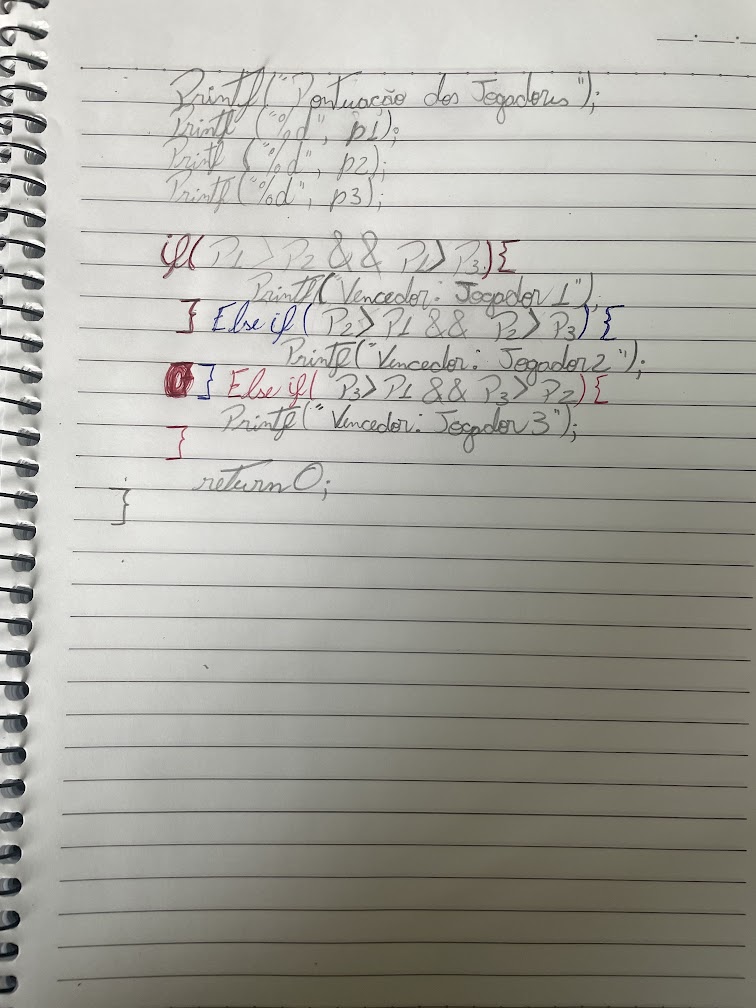 Printf("Pontuação dos Jogadores");
Printf ("%d", p1);
Printf ("%d", p2);
Printf ("%d", p3);
if( P1 > P2 && P1 > P3){
Printf("Vencedor: Jogador 1");
} Else if ( P2 > P1 && P2 > P3) {
Printf("Vencedor: Jogador 2");
} Else if( P3 > P1 && P3 > P2){
Printf("Vencedor: Jogador 3");
}
return 0;
}